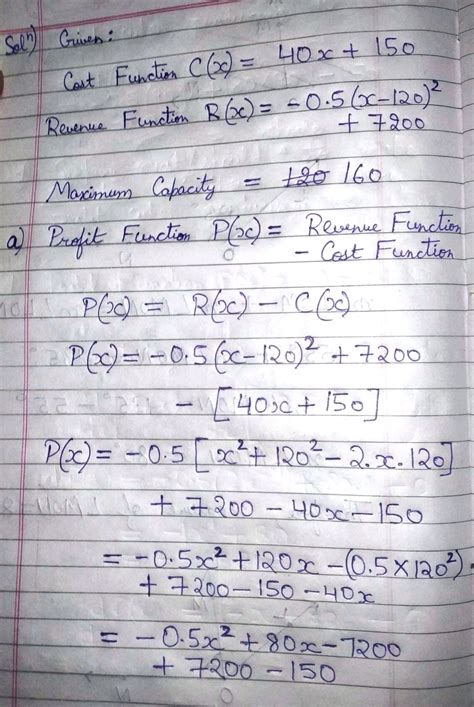 Solⁿ) Given:
Cost Function C(x) = 40x + 150
Revenue Function R(x) = -0.5(x-120)²
+ 7200
Maximum Capacity = 120 160
a) Profit Function P(x) = Revenue Function
- Cost Function
P(x) = R(x) - C(x)
P(x) = -0.5(x-120)² + 7200
- [40x + 150]
P(x) = -0.5[x² + 120² - 2.x.120]
+ 7200 - 40x - 150
= -0.5x² + 120x - (0.5×120²)
+ 7200 - 150 - 40x
= -0.5x² + 80x - 7200
+ 7200 - 150